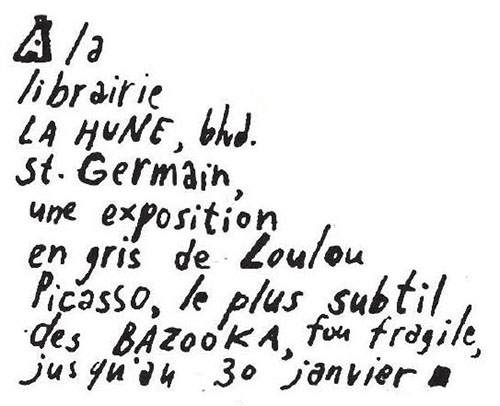 À la
librairie
LA HUNE, bhd.
st. Germain,
une exposition
en gris de Loulou
Picasso, le plus subtil
des BAZOOKA, fou fragile,
jusqu'au 30 janvier